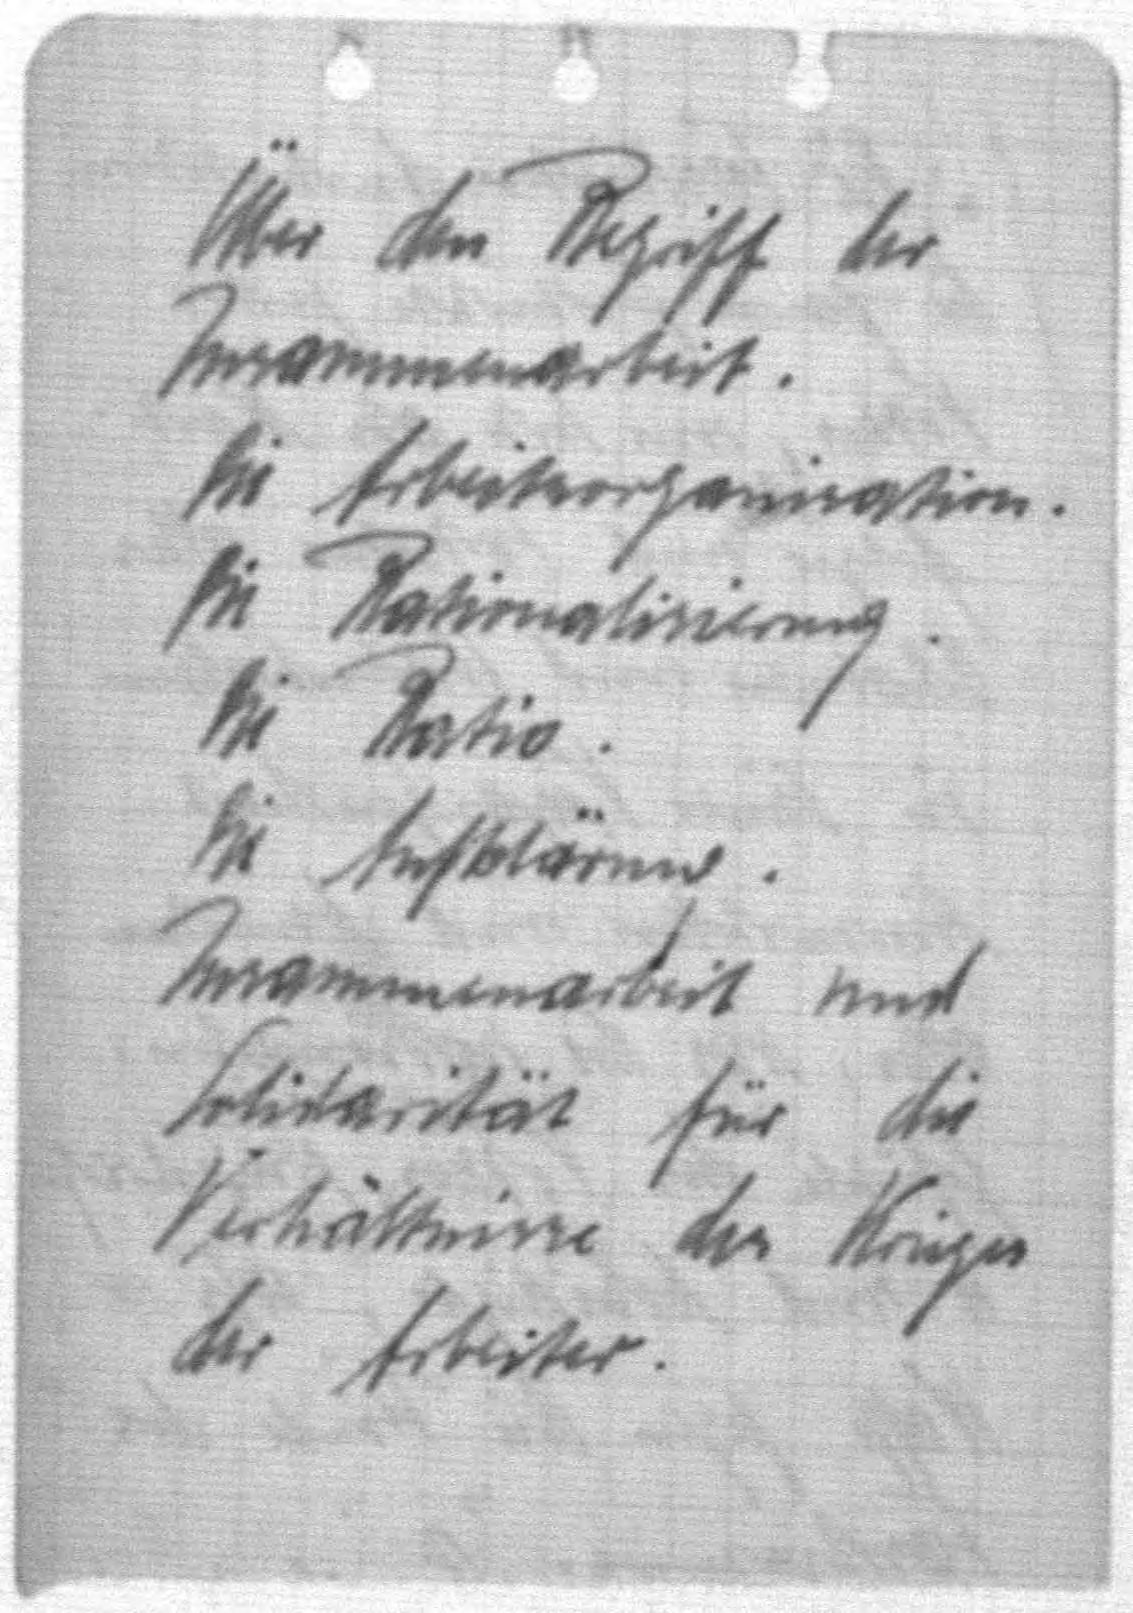 Über den Begriff der
Zusammenarbeit.
Die Arbeitsorganisation.
Die Rationalisierung.
Die Ratio.
Die Aufklärung.
Zusammenarbeit und
Solidarität für die
Verhältnisse des Krieges
der Arbeiter.